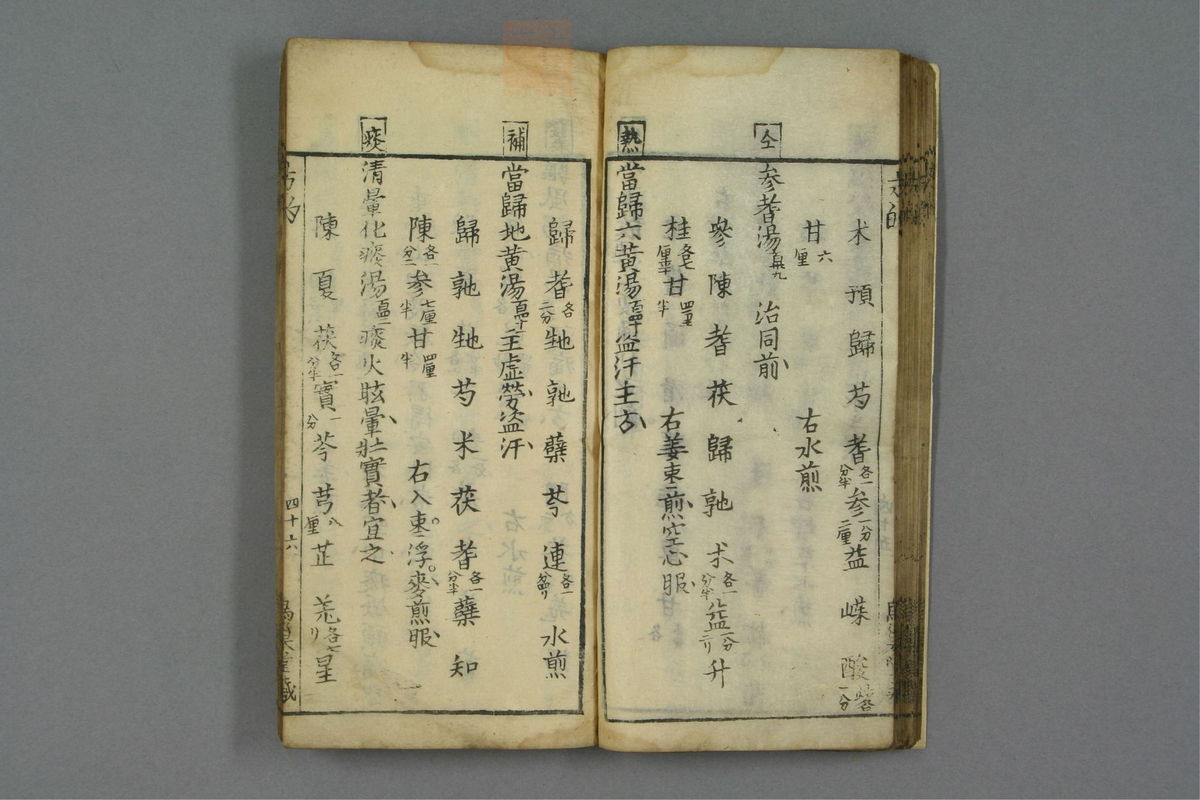 朮 預 歸 芍 耆各一分半 参一分二厘 益 嵘 酸
甘六厘 右水煎
仝 参耆湯 治同前
參 陳 耆 茯 歸 𤍠 朮各一分半 益一分二リ 升
桂各七厘半 甘四厘半 右姜束二煎空心服
熱 當歸六黄湯百四十 盗汗主方
歸 耆各二分 𤯝 𤍠 蘗 芩 連各一分 水煎
補 當歸地黄湯百四十一 主虚勞盗汗
歸 𤍠 𤯝 芍 朮 茯 耆各一分半 蘗 知
陳各一分 参七厘半 甘四厘半 右入束二浮麥煎服
痰 清暈化痰湯百四十二 痰火眩暈壯實者宜之
陳 夏 茯各一分半 實一分 芩 芎八厘 芷 羗各七リ 星
方的
四十六